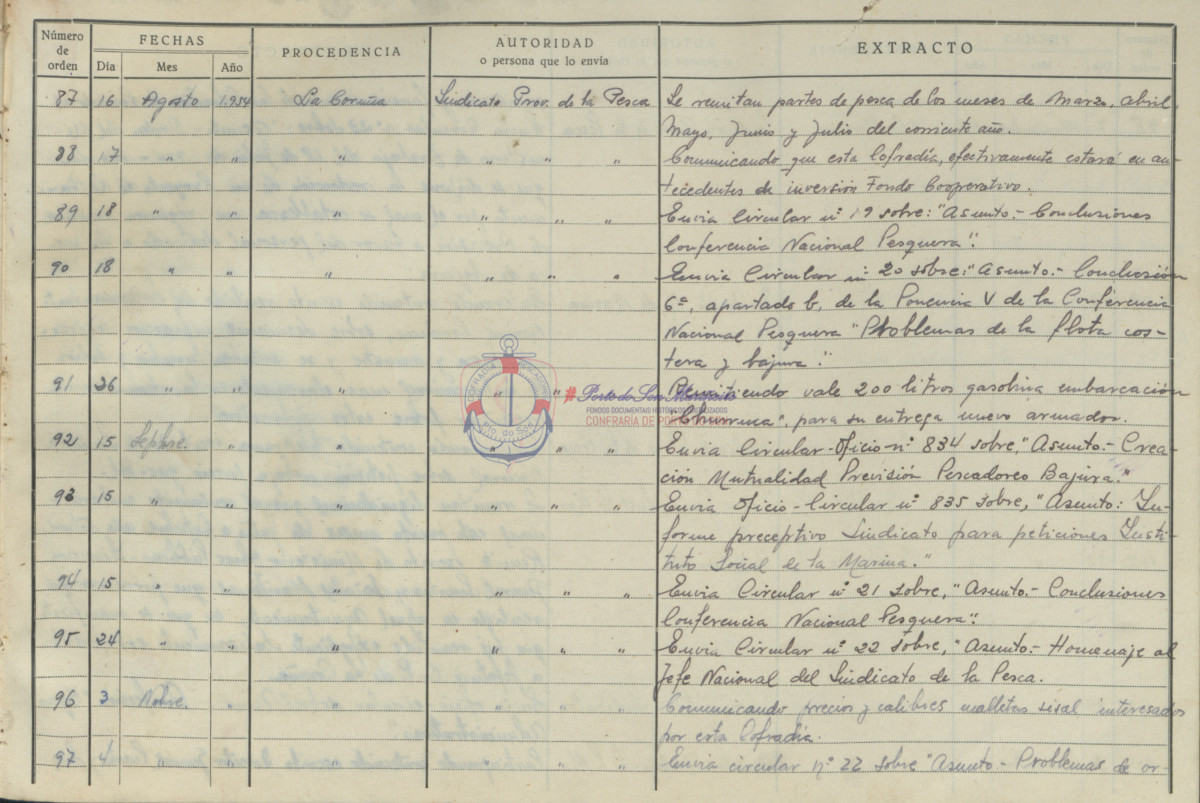 Número de orden FECHAS PROCEDENCIA AUTORIDAD o persona que lo envía EXTRACTO
Día Mes Año
87 16 Agosto 1.954 La Coruña Sindicato Prov. de la Pesca Se remitan partes de pesca de los meses de Marzo, Abril,
Mayo, Junio y Julio del corriente año.
88 17 " " " " " " Comunicando que esta Cofradía, efectivamente estará en an-
tecedentes de inversión Fondo Cooperativo.
89 18 " " " " " " Envia Circular nº 19 sobre: "Asunto.- Conclusiones
Conferencia Nacional Pesquera".
90 18 " " " " " " Envia Circular nº 20 sobre: "Asunto.- Conclusión
6ª, apartado b, de la Ponencia V de la Conferencia
Nacional Pesquera "Problemas de la flota cos-
tera y bajura".
91 26 " " " " " " Remitiendo vale 200 litros gasolina embarcación
"Churruca", para su entrega nuevo armador.
92 15 Sepbre. " " " " " Envia Circular-Oficio nº 834 sobre, "Asunto.- Crea-
ción Mutualidad Previsión Pescadores Bajura."
93 15 " " " " " " Envia Oficio-Circular nº 835 sobre, "Asunto: In-
forme preceptivo Sindicato para peticiones Insti-
tuto Social de la Marina."
94 15 " " " " " " Envia Circular nº 21 sobre, "Asunto.- Conclusiones
Conferencia Nacional Pesquera".
95 24 " " " " " " Envia Circular nº 22 sobre, "Asunto.- Homenaje al
Jefe Nacional del Sindicato de la Pesca.
96 3 Nobre. " " " " " Comunicando precios y calibres malletas sisal interesados
por esta Cofradía.
97 4 " " " " " " Envia circular nº 22 sobre "Asunto.- Problemas de or-
COFRADÍA PESCADORES
Pto. do Son
Porto do Son
FONDOS DOCUMENTAIS HISTÓRICOS DIGITALIZADOS
CONFRARÍA DE PORTO DO SON